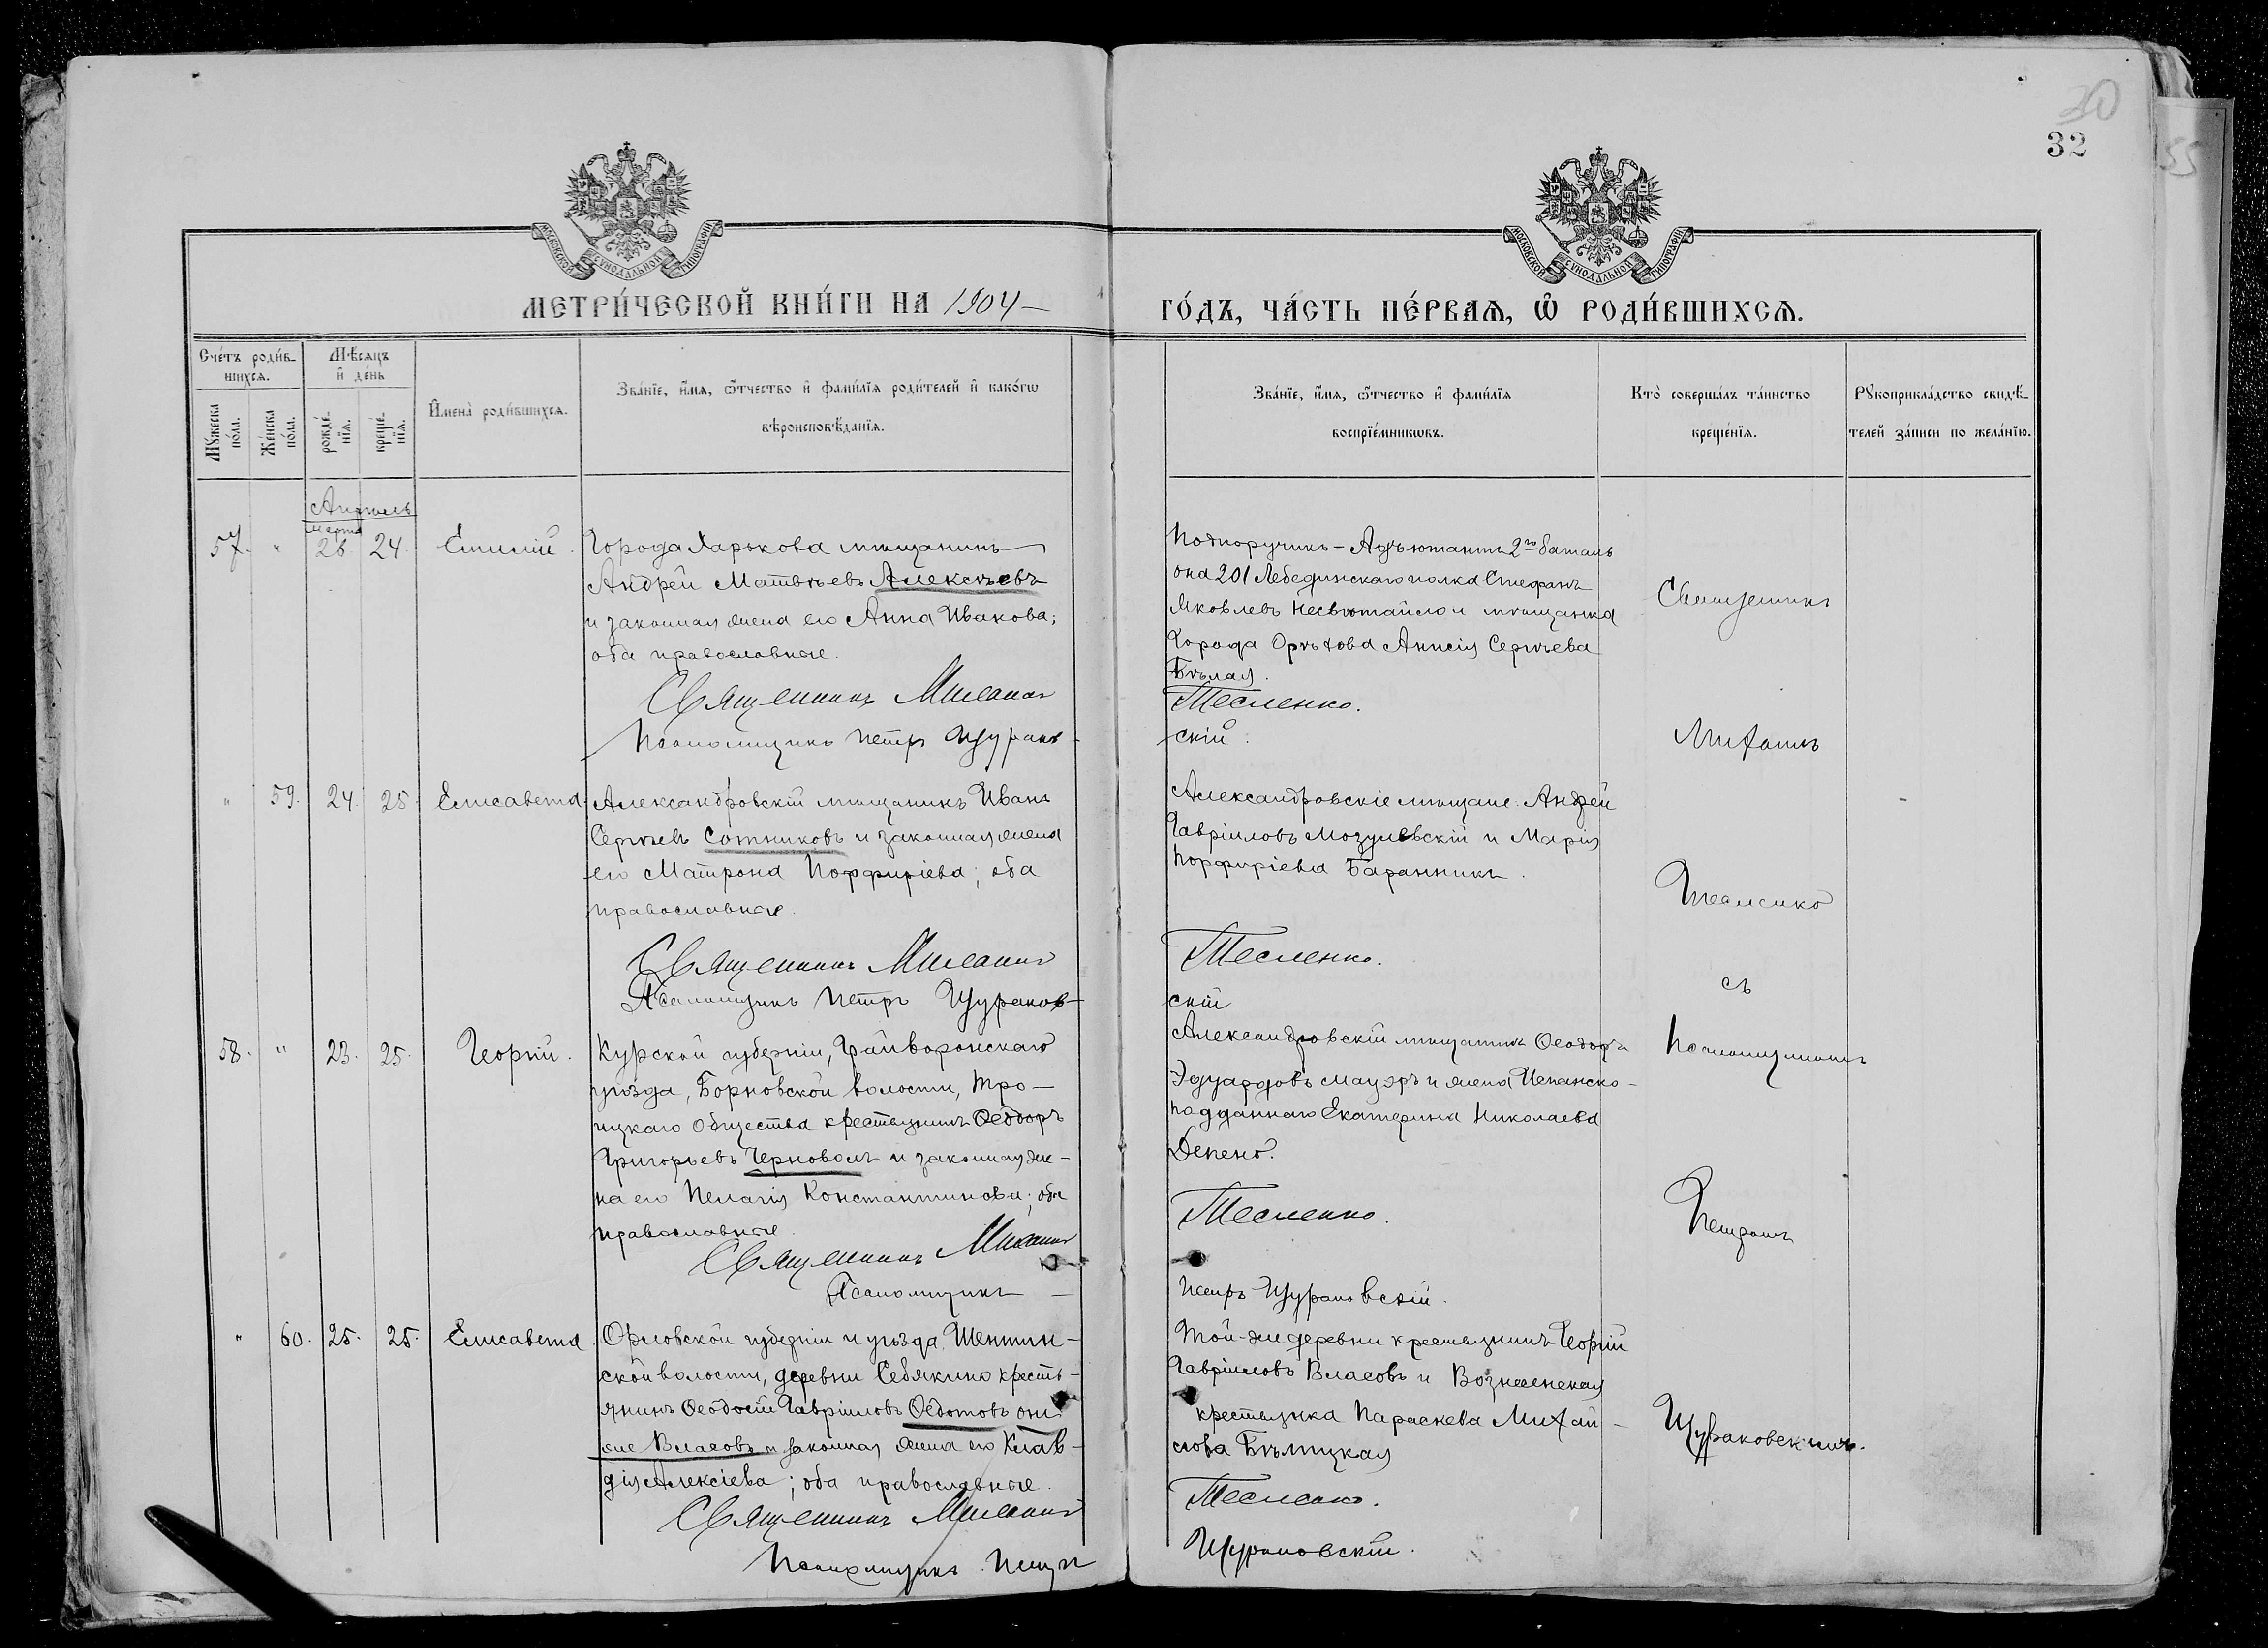 30
32
55
МОСКОВСКОЙ СУНОДАЛЬНОЙ ТИПОГРАФІИ
МОСКОВСКОЙ СУНОДАЛЬНОЙ ТИПОГРАФІИ
МЕТРИ́ЧЕСКОЙ КНИ́ГИ НА 1904 –
ГО́ДЪ, ЧА́СТЬ ПЕ́РВАѦ, Ѽ РОДИ́ВШИХСѦ.
Сче́тъ роди́в-
шихсѧ.
Мѣ́сѧцъ
и҆ де́нь
Мꙋ́жеска по́ла.
Же́нска по́ла.
рожде́-
нїѧ.
креще́-
нїѧ.
И҆мена̀ роди́вшихсѧ.
Зва́нїе, и҆́мѧ, ѻ҆́тчество и҆ фами́лїѧ роди́телей и҆ како́гѡ
вѣроисповѣ́данїѧ.
Зва́нїе, и҆́мѧ, ѻ҆́тчество и҆ фами́лїѧ
воспрїе́мникѡвъ.
Кто̀ соверша́лъ та́инство
креще́нїѧ.
Рꙋкоприкла́дство свидѣ́-
телей за́писи по жела́нїю.
Апрѣль
марта
57. " 26 24 Емилій.
Города Харькова мѣщанинъ
Андрей Матвѣевъ Алексѣевъ
и законная жена его Анна Иванова;
оба православные.
Священникъ Михаилъ
Псаломщикъ Петръ Щураков-
Подпоручикъ - Адъютантъ 2го баталь
она 201 Лебединскаго полка Стефанъ
Яковлевъ Несвѣтайло и мѣщанка
Города Орѣхова Анисія Сергѣева
Бѣлая.
Тесленко.
скій.
Священникъ
Михаилъ
" 59. 24. 25. Елисавета.
Александровскій мѣщанинъ Иванъ
Сергѣевъ Сотниковъ и законная жена
его Матрона Порфиріева; оба
православные.
Священникъ Михаилъ
Псаломщикъ Петръ Щураков-
Александровскіе мѣщане. Андрей
Гавріиловъ Мозулевскій и Марія
Порфиріева Баранникъ.
Тесленко.
скій
Тесленко
съ
58. " 23. 25. Георгій.
Курской губерніи, Грайворонскаго
уѣзда, Борновской волости, Тро-
ицкаго Общества крестьянинъ Ѳеодоръ
Григорьевъ Черноволъ и законная же-
на его Пелагія Константинова; оба
православные.
Священникъ Михаилъ
Псаломщикъ –
Александровскій мѣщанинъ Ѳеодоръ
Эдуардовъ Мауэръ и жена Испанско-
подданнаго Екатерина Николаева
Депено.
Тесленко.
Петръ Щураковскій.
Псаломщикомъ
Петромъ
" 60. 25. 25. Елисавета.
Орловской губерніи и уѣзда, Шентин-
ской волости, деревни Себякино кресть-
янинъ Ѳеодосій Гавріиловъ Ѳедотовъ онъ
же Власовъ и законная жена его Клав-
дія Алексіева; оба православные.
Священникъ Михаилъ
Псаломщикъ Петръ
Той-же деревни крестьянинъ Георгій
Гавріиловъ Власовъ и Вознесенская
крестьянка Параскева Михай-
лова Бѣлицкая
Тесленко.
Щураковскій.
Щураковскимъ.